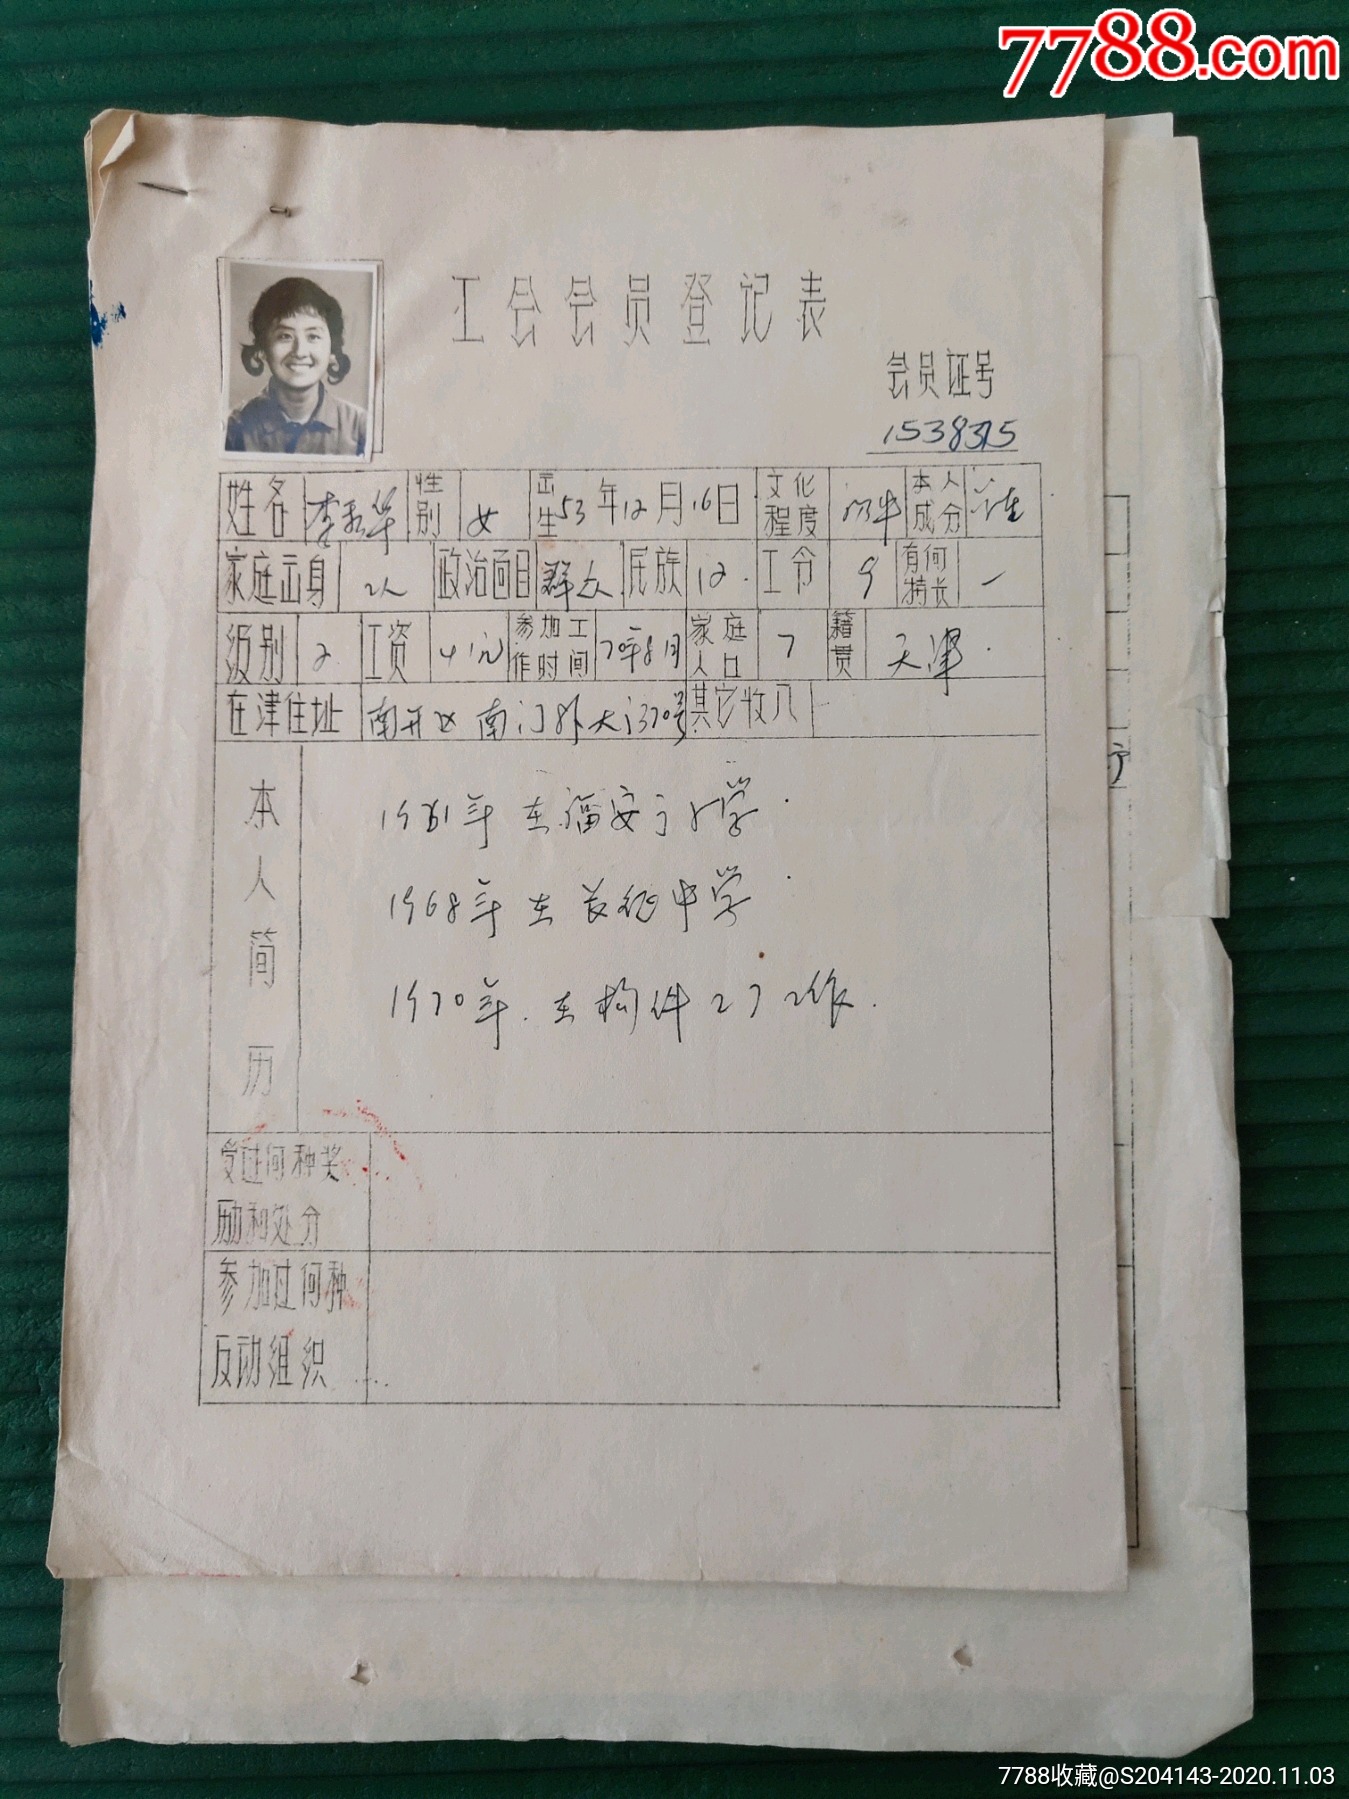 7788.com
工会会员登记表
会员证号
1538375
姓名 李 华 性别 女 出生 53年12月16日 文化程度 初中 本人成分
家庭出身 工人 政治面目 群众 民族 汉 工令 9 有何特长 一
级别 2 工资 41元 参加工作时间 70年8月 家庭人口 7 籍贯 天津
在津住址 南开区南门外大 370号 其它收入
本人简历
1961年在福安 小学
1968年在长征中学
1970年.在构件厂工作.
受过何种奖
励和处分
参加过何种
反动组织
7788收藏@S204143-2020.11.03